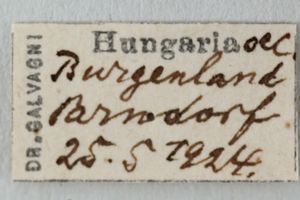 DR. GALVAGNI
Hungaria occ.
Burgenland
Parndorf
25. 5 1924.